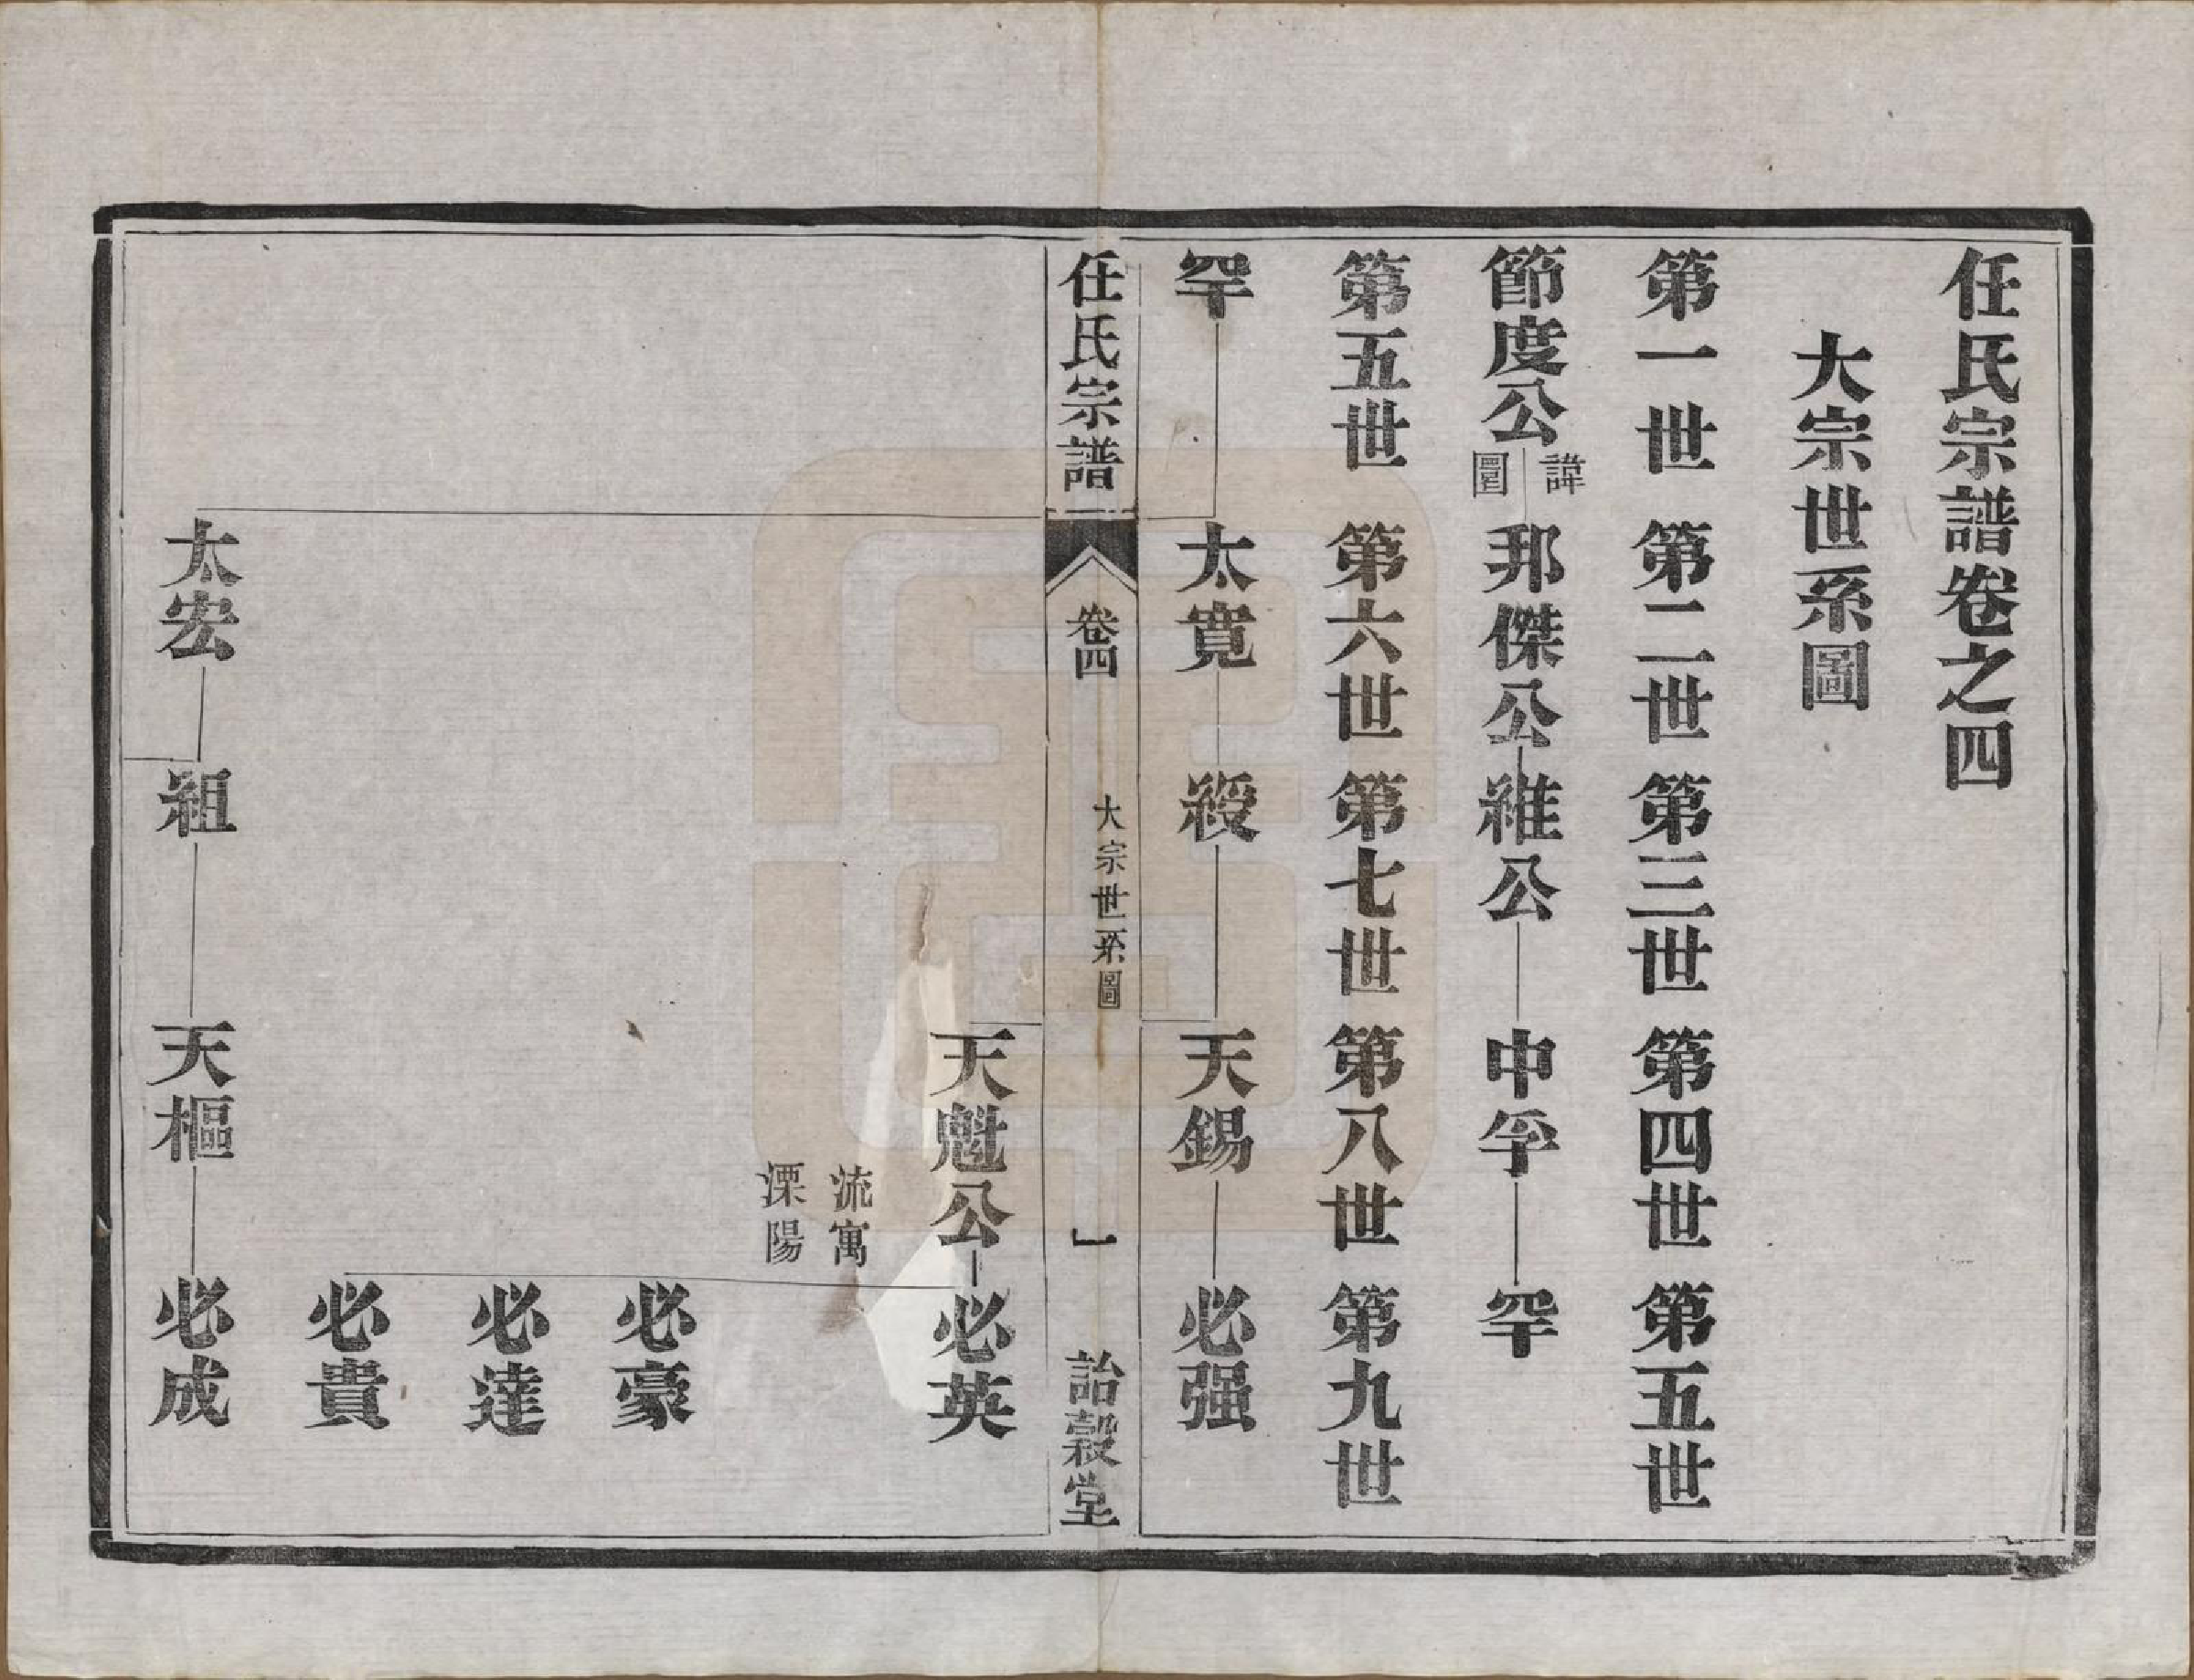 任氏宗譜卷之四
大宗世系圖
第一世 第二世 第三世 第四世 第五世
節度公 諱圛 邦傑公 維公 中孚 罕
第五世 第六世 第七世 第八世 第九世
罕 太寛 綬 天錫 必强
任氏宗譜 卷四 大宗世系圖 一 詒穀堂
天魁公 必英
流寓
溧陽
必豪
必達
必貴
太宏 組 天樞 必成